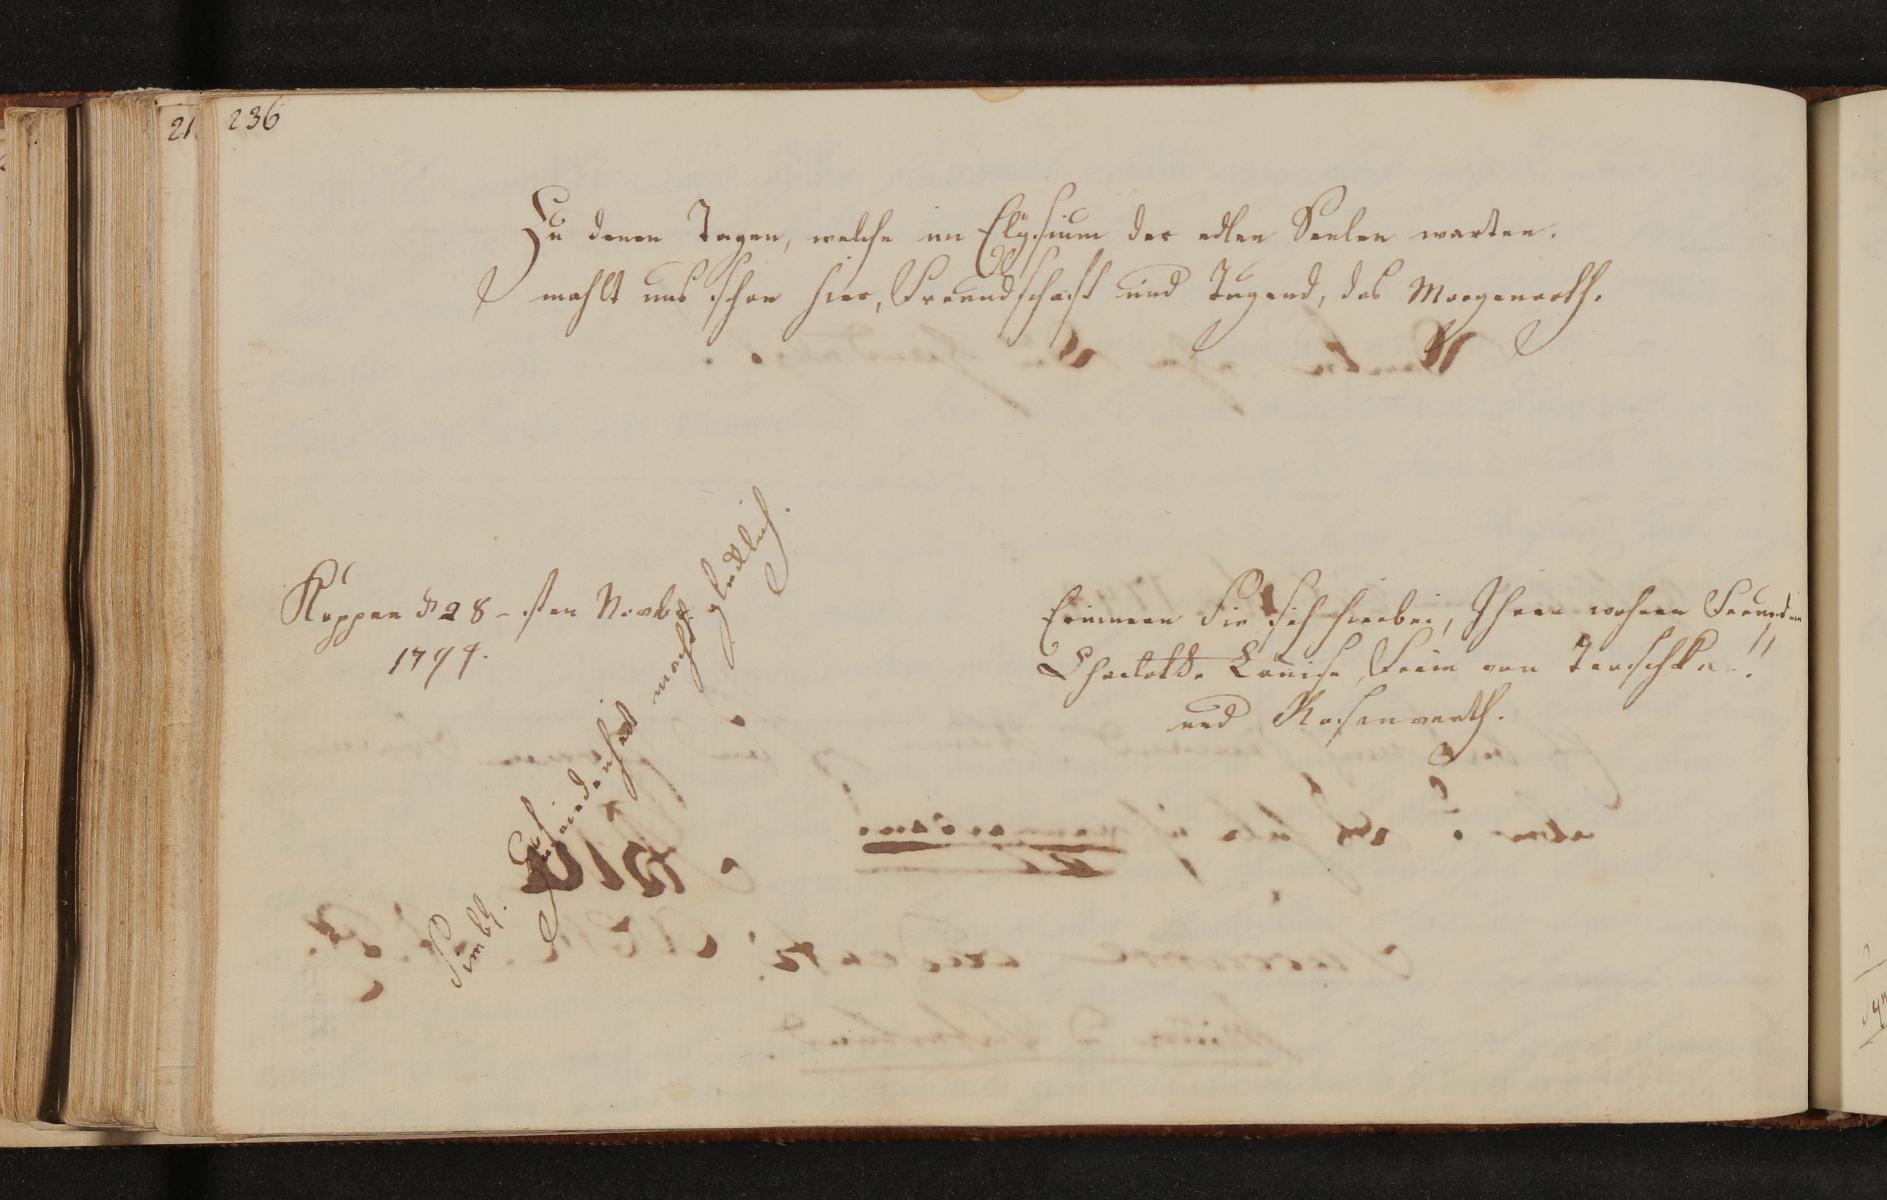 236
Zu denen Tagen, welche im Elÿsium der edlen Seelen warten.
mahlt uns schon hier, Freundschaft und Tugend, das Morgenroth.
Koppen d 28 - sten Novbr.
1794.
Erinnern Sie sich hierbei, Ihrer wahren Freundin
Charlotte Louise, Freiin von Teuschke!!
und Rosenwerth.
Symb. Zufriedenheit macht glücklich.